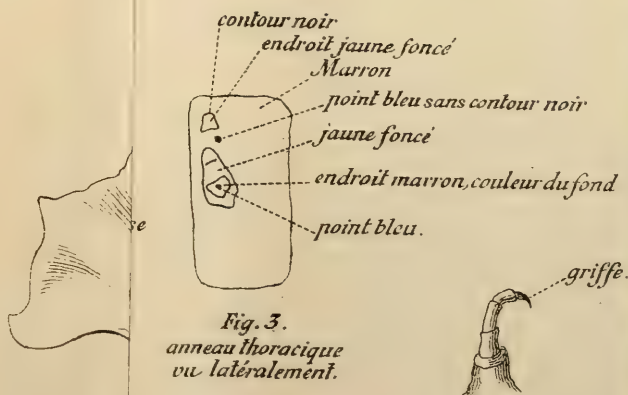 contour noir
endroit jaune foncé
Marron
point bleu sans contour noir
jaune foncé
endroit marron, couleur du fond
point bleu.
se
griffe.
Fig. 3.
anneau thoracique
vu latéralement.